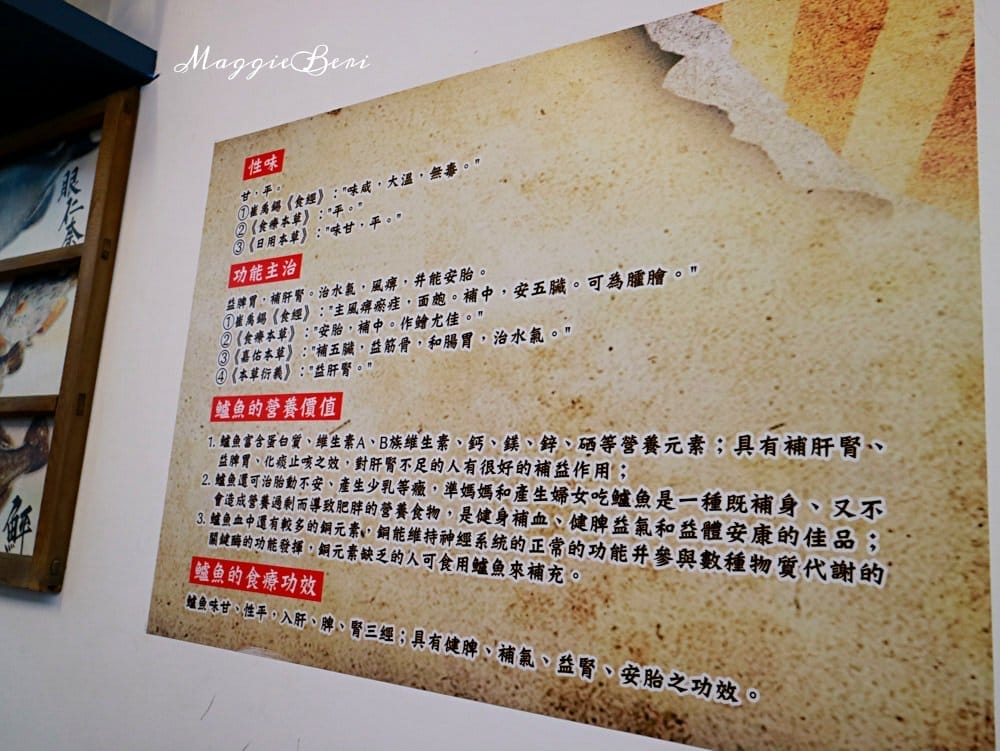 MaggieBeri
眼仁奈
鮮
性味
甘，平。
①崔禹錫《食經》："味咸，大溫，無毒。"
②《食療本草》："平。"
③《日用本草》："味甘，平。"
功能主治
益脾胃，補肝腎。治水氣，風痹，并能安胎。
①崔禹錫《食經》："主風痹瘀疰，面皰。補中，安五臟。可為臛膾。"
②《食療本草》："安胎，補中。作鱠尤佳。"
③《嘉佑本草》："補五臟，益筋骨，和腸胃，治水氣。"
④《本草衍義》："益肝腎。"
鱸魚的營養價值
1. 鱸魚富含蛋白質、維生素A、B族維生素、鈣、鎂、鋅、硒等營養元素；具有補肝腎、
益脾胃、化痰止咳之效，對肝腎不足的人有很好的補益作用；
2. 鱸魚還可治胎動不安、產生少乳等癥，準媽媽和產生婦女吃鱸魚是一種既補身、又不
會造成營養過剩而導致肥胖的營養食物，是健身補血、健脾益氣和益體安康的佳品；
3. 鱸魚血中還有較多的銅元素，銅能維持神經系統的正常的功能并參與數種物質代謝的
關鍵酶的功能發揮，銅元素缺乏的人可食用鱸魚來補充。
鱸魚的食療功效
鱸魚味甘、性平，入肝、脾、腎三經；具有健脾、補氣、益腎、安胎之功效。